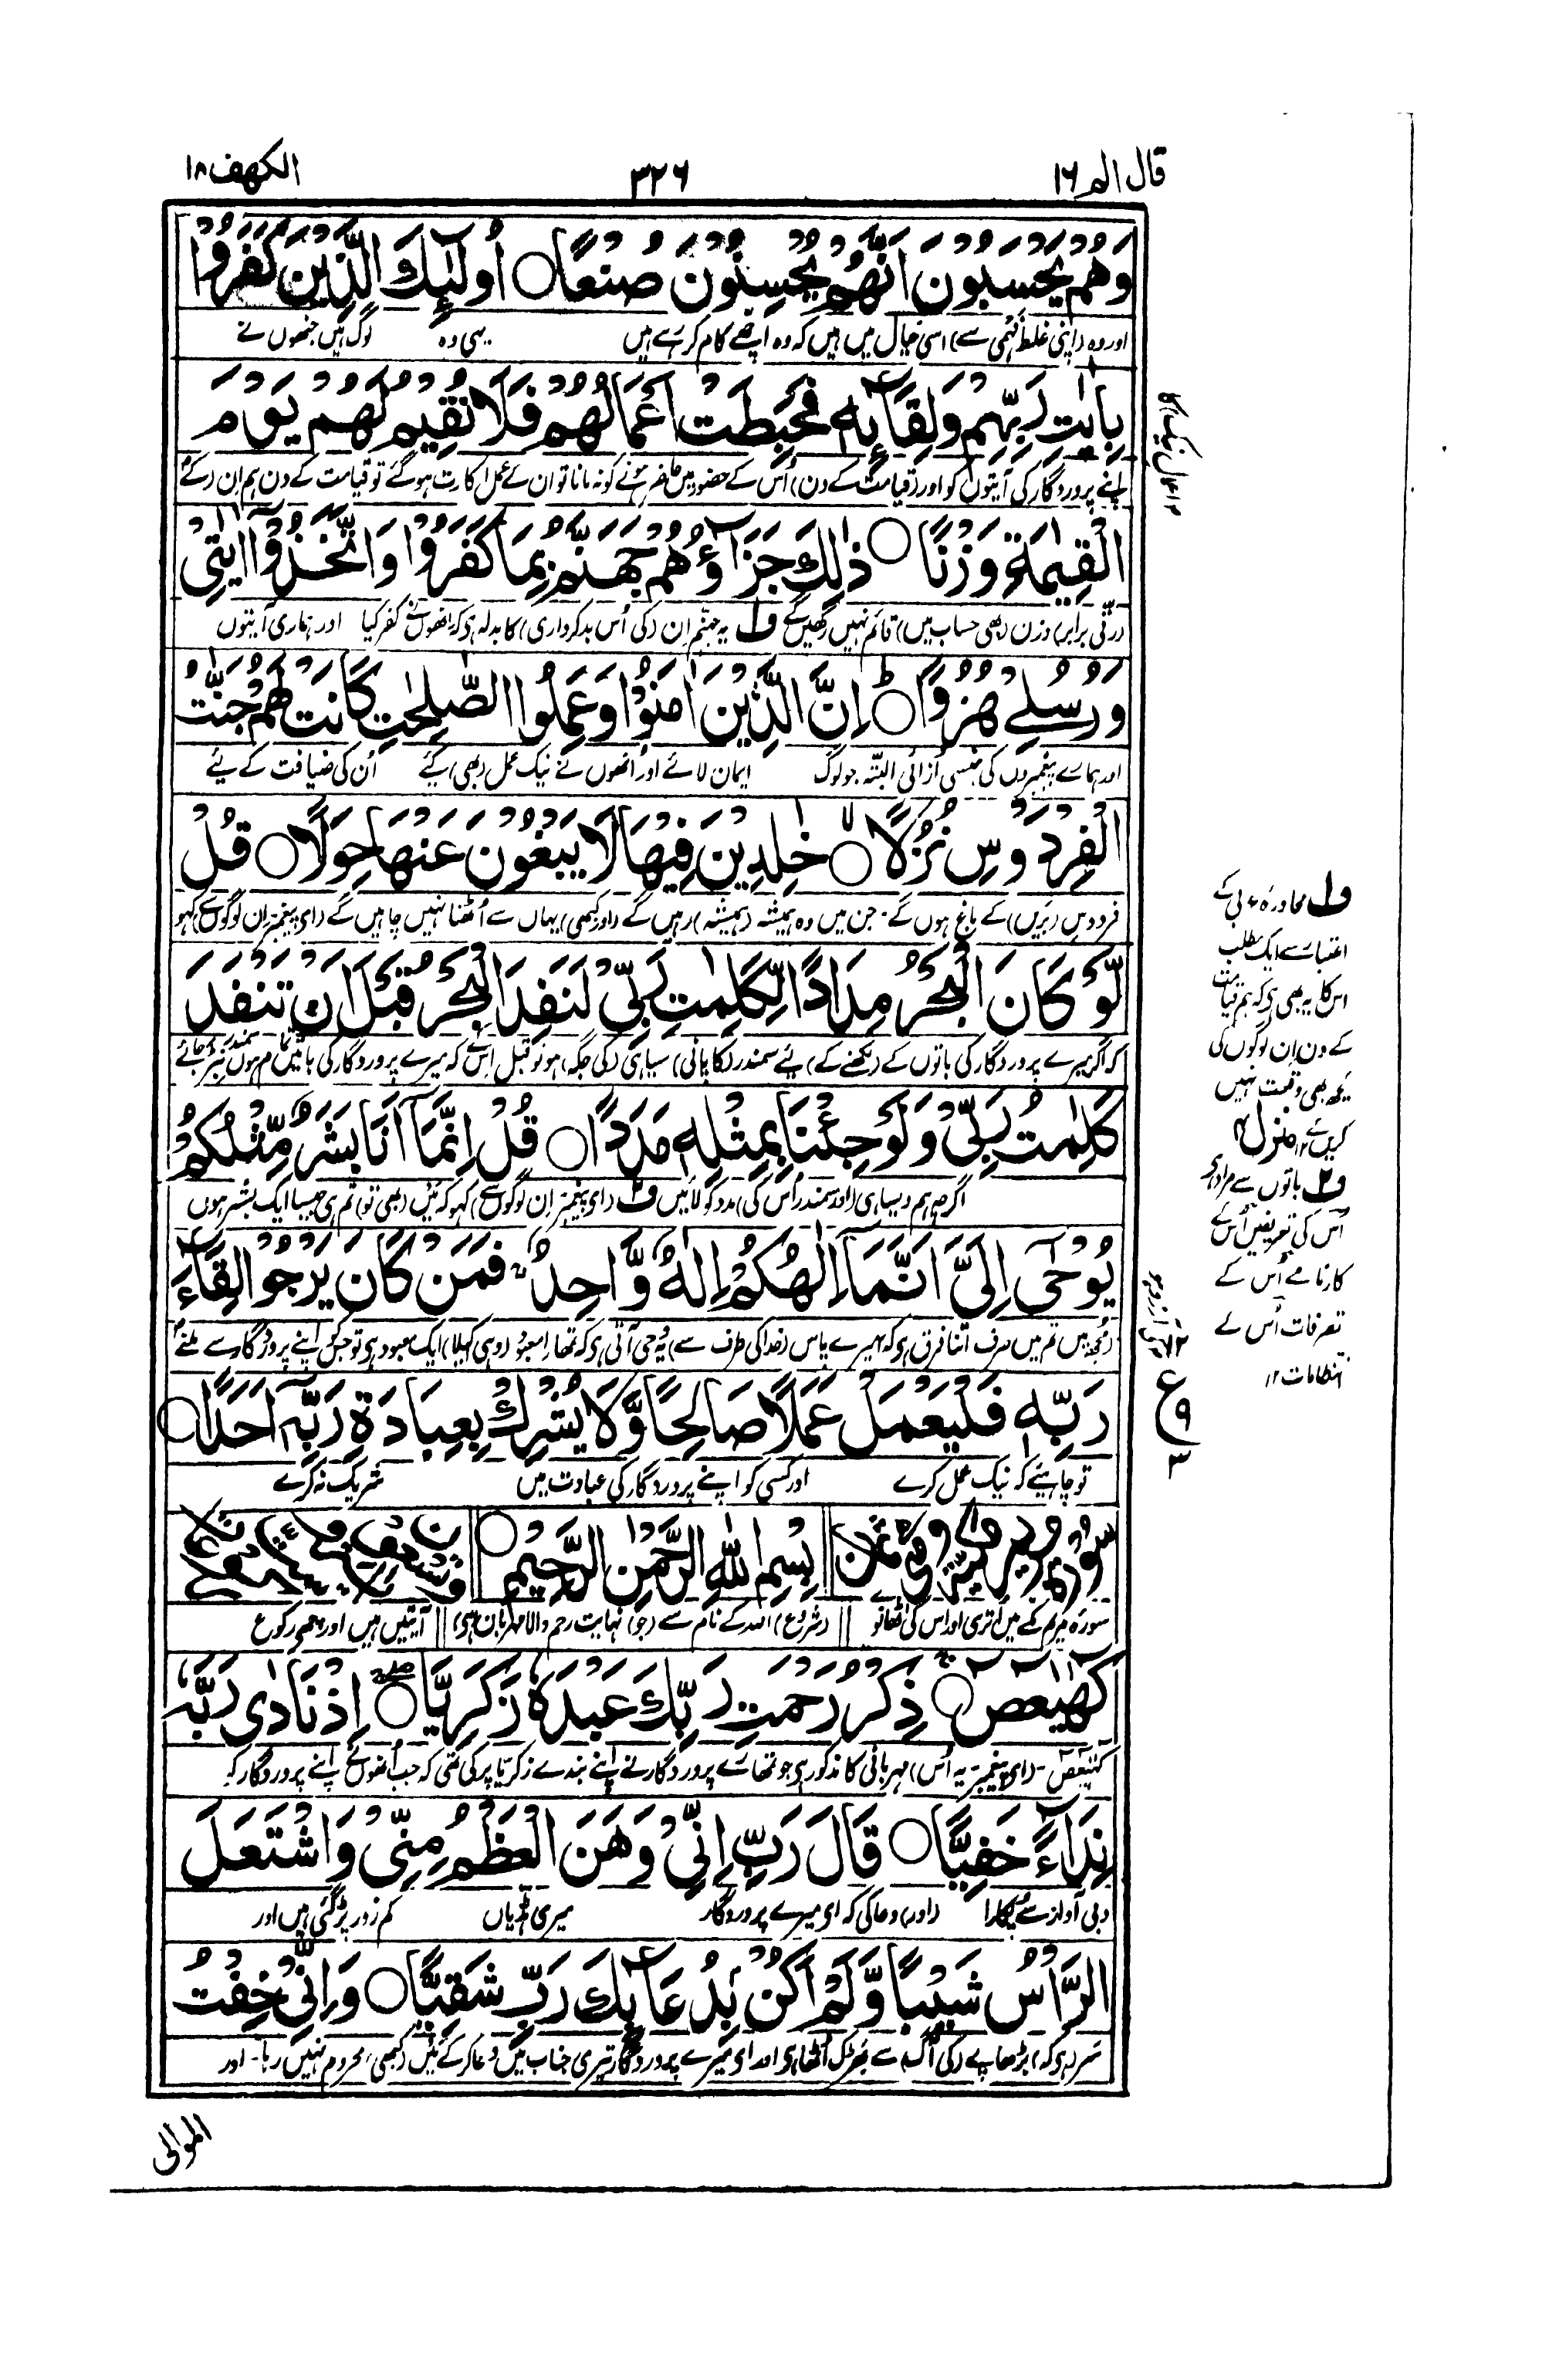 قال الم ١٦
٣٢٦
الكهف ١٨
وَهُمْ يَحْسَبُوْنَ اَنَّهُمْ يُحْسِنُوْنَ صُنْعًا ○ اُولٰٓئِكَ الَّذِيْنَ كَفَرُوْا
اور وہ (اپنی غلط فہمی سے) اسی خیال میں ہیں کہ وہ اچھے کام کر رہے ہیں یہی وہ لوگ ہیں جنھوں نے
بِاٰيٰتِ رَبِّهِمْ وَلِقَآئِهٖ فَحَبِطَتْ اَعْمَالُهُمْ فَلَا نُقِيْمُ لَهُمْ يَوْمَ
اپنے پروردگار کی آیتوں کو اور (قیامت کے دن) اُس کے حضور میں حاضر ہونے کو نہ مانا تو ان کے عمل اکارت ہو گئے تو قیامت کے دن ہم ان (کے
الْقِيٰمَةِ وَزْنًا ○ ذٰلِكَ جَزَآؤُهُمْ جَهَنَّمُ بِمَا كَفَرُوْا وَاتَّخَذُوْٓا اٰيٰتِيْ
(رتی برابر) وزن (بھی حساب میں) قائم نہیں رکھیں گے ف۱ یہ جہنم ان (کی اُس بدکرداری) کا بدلہ ہی کہ انھوں نے کفر کیا اور ہماری آیتوں
وَرُسُلِيْ هُزُوًا ○ اِنَّ الَّذِيْنَ اٰمَنُوْا وَعَمِلُوا الصّٰلِحٰتِ كَانَتْ لَهُمْ جَنّٰتُ
اور ہمارے پیغمبروں کی ہنسی اُڑائی البتہ جو لوگ ایمان لائے اور اُنھوں نے نیک عمل (بھی) کیے اُن کی ضیافت کے لیے
الْفِرْدَوْسِ نُزُلًا ○ خٰلِدِيْنَ فِيْهَا لَا يَبْغُوْنَ عَنْهَا حِوَلًا ○ قُلْ
فردوس (بریں) کے باغ ہوں گے۔ جن میں وہ ہمیشہ (ہمیشہ) رہیں گے (اور کبھی) یہاں سے اُٹھنا نہیں چاہیں گے (ای پیغمبر ان لوگوں سے) کہو
لَّوْ كَانَ الْبَحْرُ مِدَادًا لِّكَلِمٰتِ رَبِّيْ لَنَفِدَ الْبَحْرُ قَبْلَ اَنْ تَنْفَدَ
کہ اگر میرے پروردگار کی باتوں کے (لکھنے کے) لیے سمندر (کا پانی) سیاہی (کی جگہ) ہو تو قبل اس کے کہ میرے پروردگار کی باتیں تمام ہوں سمندر نبڑ جائے
كَلِمٰتُ رَبِّيْ وَلَوْ جِئْنَا بِمِثْلِهٖ مَدَدًا ○ قُلْ اِنَّمَآ اَنَا بَشَرٌ مِّثْلُكُمْ
اگرچہ ہم ویسا ہی (اور سمندر اُس کی) مدد کو لائیں ف۲ (ای پیغمبر ان لوگوں سے) کہو کہ میں (بھی تو) تم ہی جیسا ایک بشر ہوں
يُوْحٰٓى اِلَيَّ اَنَّمَآ اِلٰهُكُمْ اِلٰهٌ وَّاحِدٌ فَمَنْ كَانَ يَرْجُوْا لِقَآءَ
(مجھ میں تم میں صرف اتنا فرق ہی کہ) میرے پاس (خدا کی طرف سے) یہ وحی آتی ہی کہ تمھارا معبود (وہی اکیلا) ایک معبود ہی تو جس کو اپنے پروردگار سے ملنے
رَبِّهٖ فَلْيَعْمَلْ عَمَلًا صَالِحًا وَّلَا يُشْرِكْ بِعِبَادَةِ رَبِّهٖٓ اَحَدًا ○
تو چاہیئے کہ نیک عمل کرے اور کسی کو اپنے پروردگار کی عبادت میں شریک نہ کرے
بِسْمِ اللّٰهِ الرَّحْمٰنِ الرَّحِيْمِ ○
سورۂ مریم مکے میں اُتری اور اس کی اٹھانوے (شروع) اللہ کے نام سے (جو) نہایت رحم والا مہربان (ہی) آیتیں ہیں اور چھ رکوع
كٓهٰيٰعٓصٓ ○ ذِكْرُ رَحْمَتِ رَبِّكَ عَبْدَهٗ زَكَرِيَّا ○ اِذْ نَادٰى رَبَّهٗ
کہیعص۔ (ای پیغمبر یہ اُس) مہربانی کا مذکور ہی جو تمھارے پروردگار نے اپنے بندے زکریا پر کی تھی کہ جب اُنھوں نے اپنے پروردگار کو
نِدَآءً خَفِيًّا ○ قَالَ رَبِّ اِنِّيْ وَهَنَ الْعَظْمُ مِنِّيْ وَاشْتَعَلَ
دبی آواز سے پکارا (اور) دعا کی کہ ای میرے پروردگار میری ہڈیاں کمزور پڑ گئی ہیں اور
الرَّاْسُ شَيْبًا وَّلَمْ اَكُنْۢ بِدُعَآئِكَ رَبِّ شَقِيًّا ○ وَاِنِّيْ خِفْتُ
سر (ہی کہ) بڑھاپے (کی آگ) سے بھڑک اُٹھا ہی اور ای میرے پروردگار تیری جناب میں دعا کر کے میں (کبھی) محروم نہیں رہا۔ اور
الموالی
ف۱ محاورۂ عربی کے
اعتبار سے ایک مطلب
اس کا یہ بھی ہی کہ ہم قیامت
کے دن ان لوگوں کی
کچھ بھی وقعت نہیں
کریں گے ۱۲ منزل ۴
ف۲ باتوں سے مراد ہی
اُس کی تعریفیں اُس کے
کارنامے اُس کے
تصرفات اُس کے
انتظامات ۱۲
ع
٩
٣